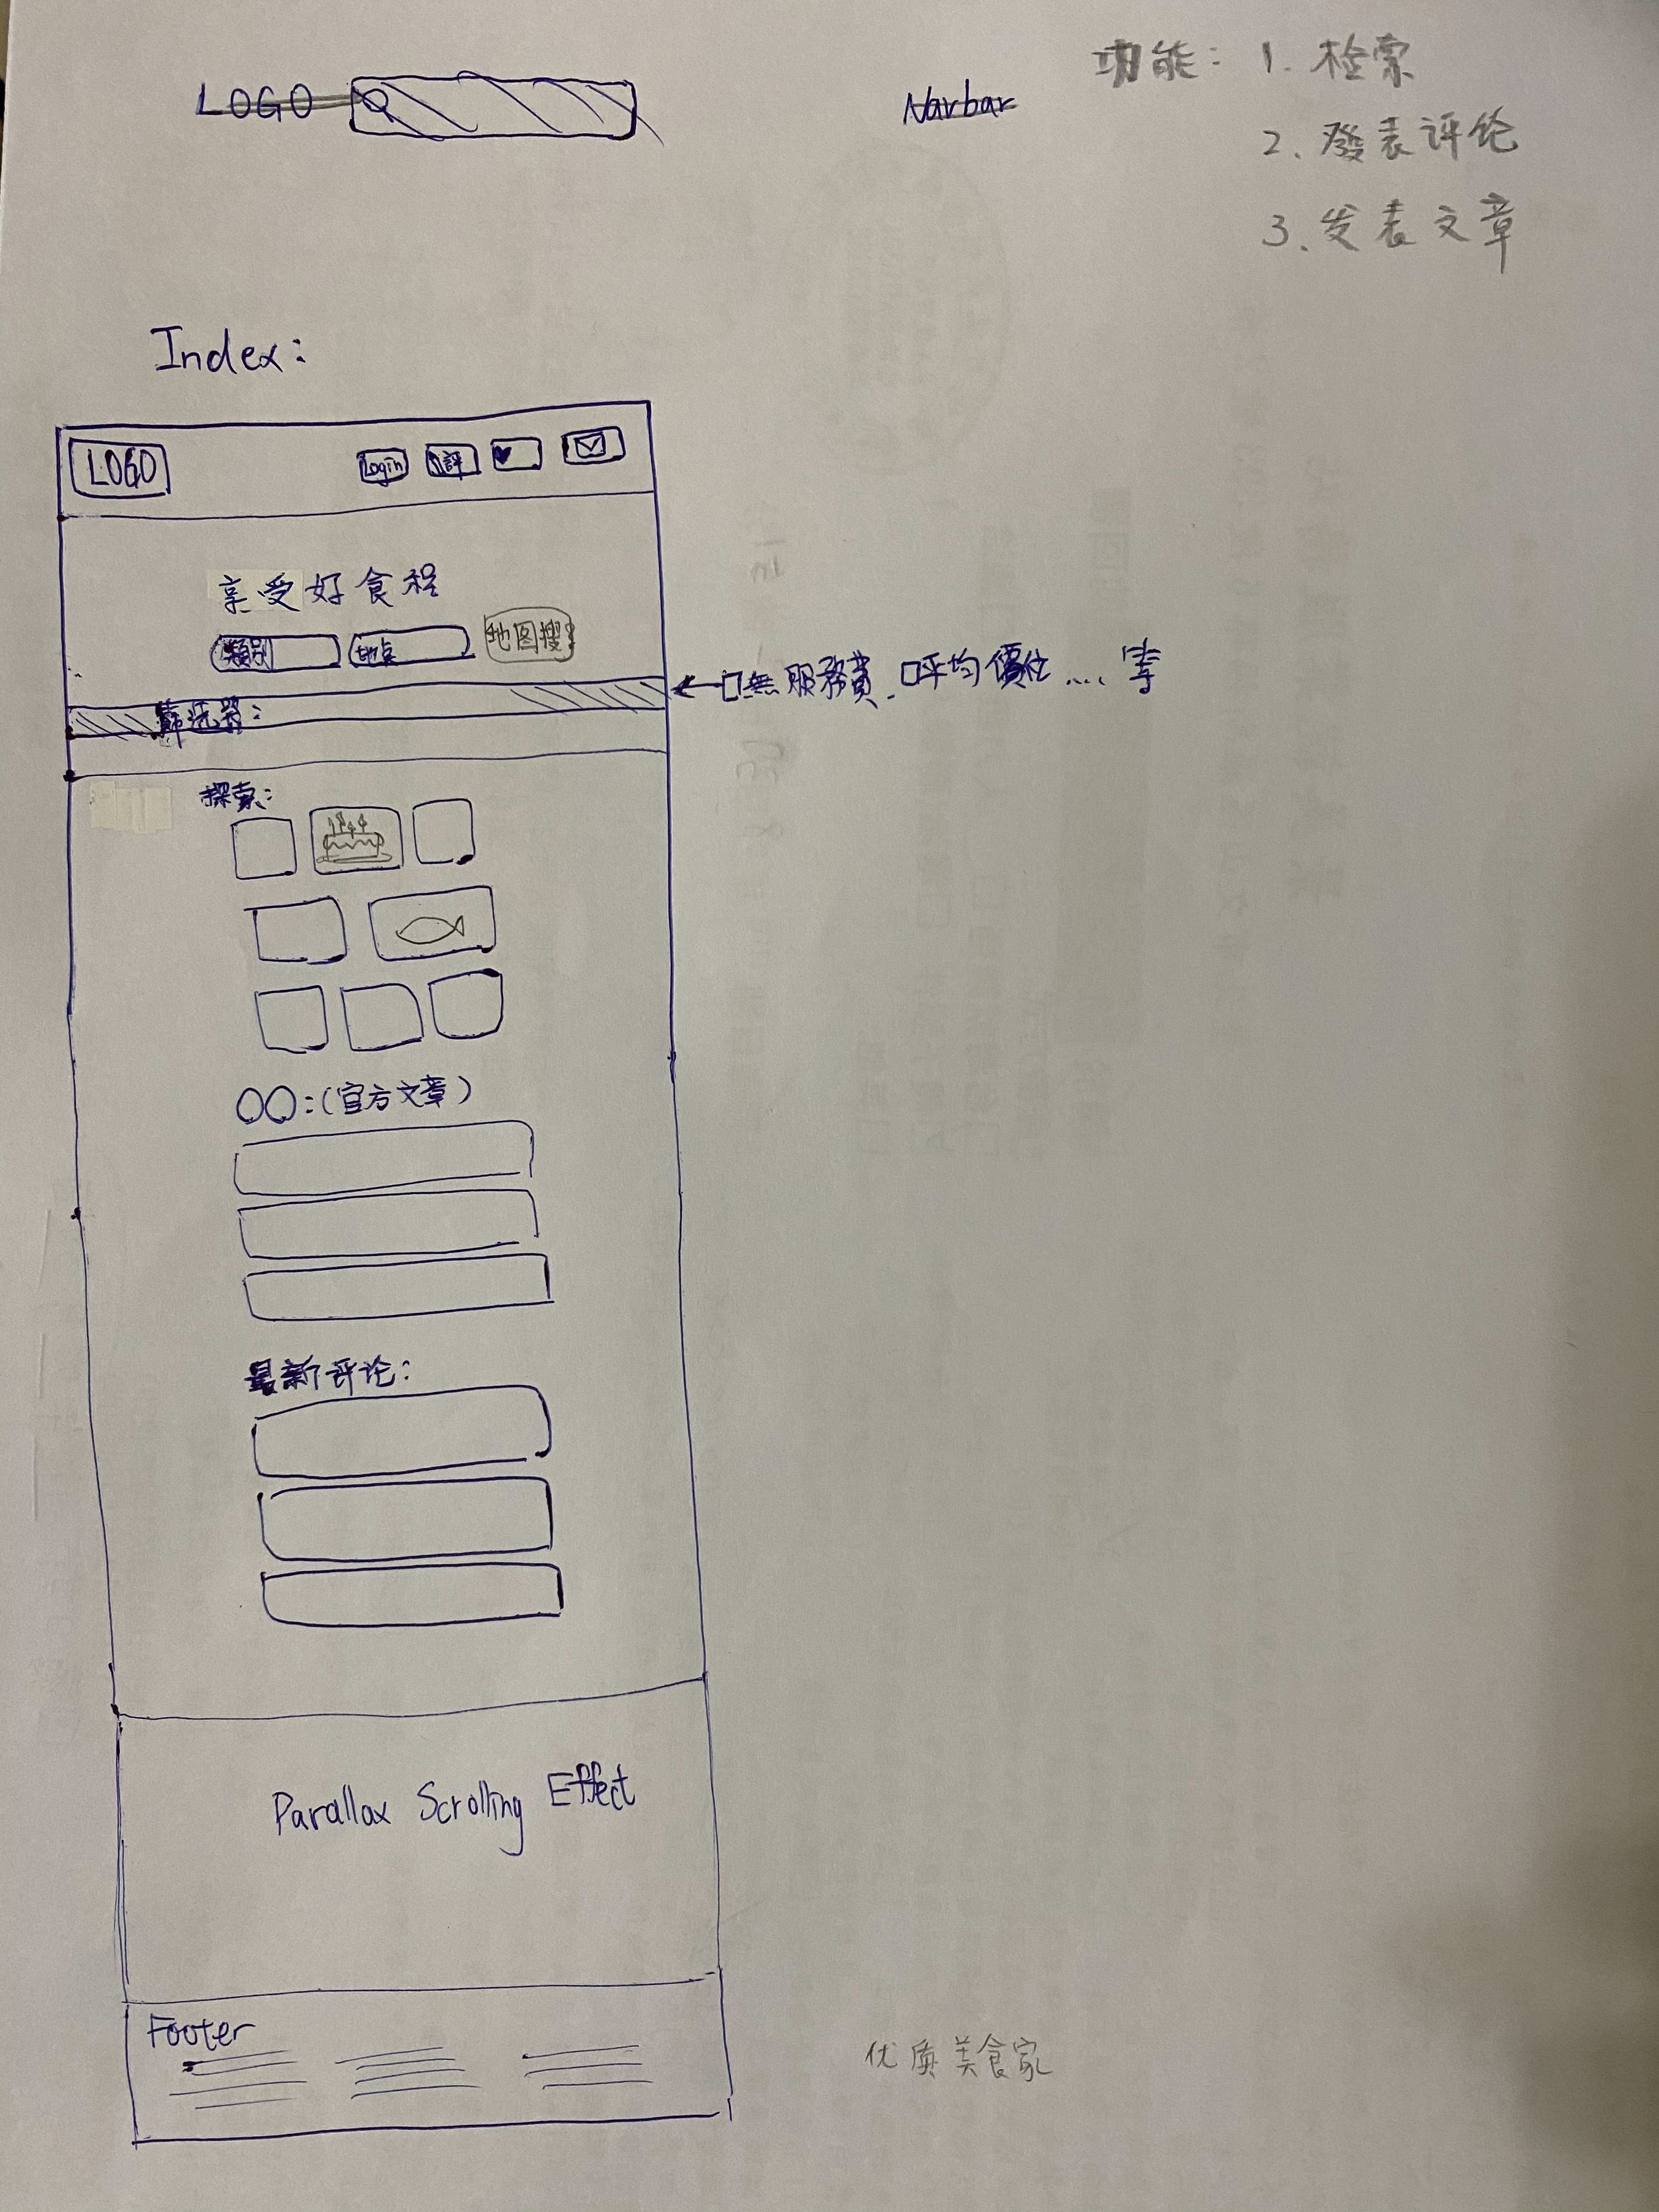 LOGO
Narbar
功能：1. 检索
2、發表评论
3、发表文章
Index:
LOGO
Login
評
享受好食程
類別
地点
地图搜
筛选器：
←□無服務費、□平均價位....等
探索：
〇〇:(官方文章)
最新评论：
Parallax Scrolling Effect
Footer
优质美食家